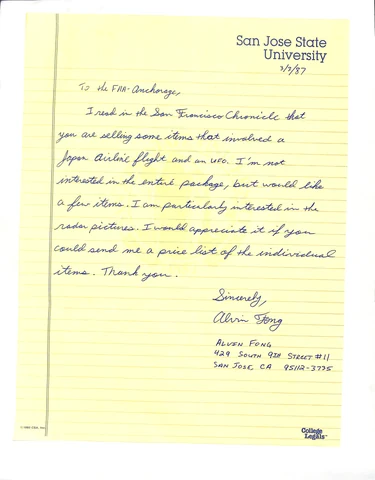 San Jose State
University
3/7/87
To the FAA-Anchorage,
I read in the San Francisco Chronicle that
you are selling some items that involved a
Japan Airline flight and an UFO. I'm not
interested in the entire package, but would like
a few items. I am particularly interested in the
radar pictures. I would appreciate it if you
could send me a price list of the individual
items. Thank you.
Sincerely,
Alvin Fong
ALVEN FONG
429 SOUTH 9TH STREET #11
SAN JOSE CA 95112-3775
College
Legals™